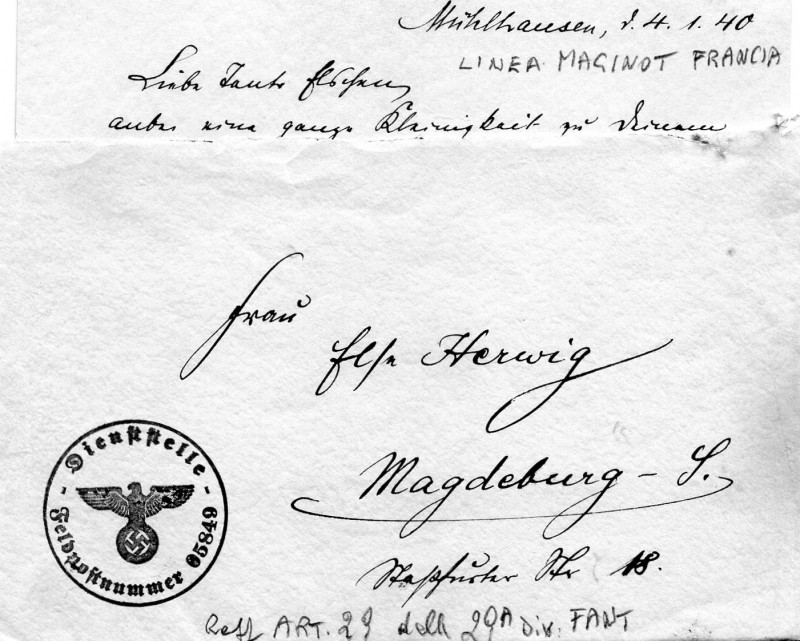 Mühlhausen, d. 4. 1. 40
LINEA MAGINOT FRANCIA
Liebe Tante Elschen,
anbei eine ganze Kleinigkeit zu Deinem
Frau
Else Herwig
Magdeburg - S.
Staßfurter Str 18.
- Dienststelle -
Feldpostnummer 05849
ART. 29 29A Div. FANT